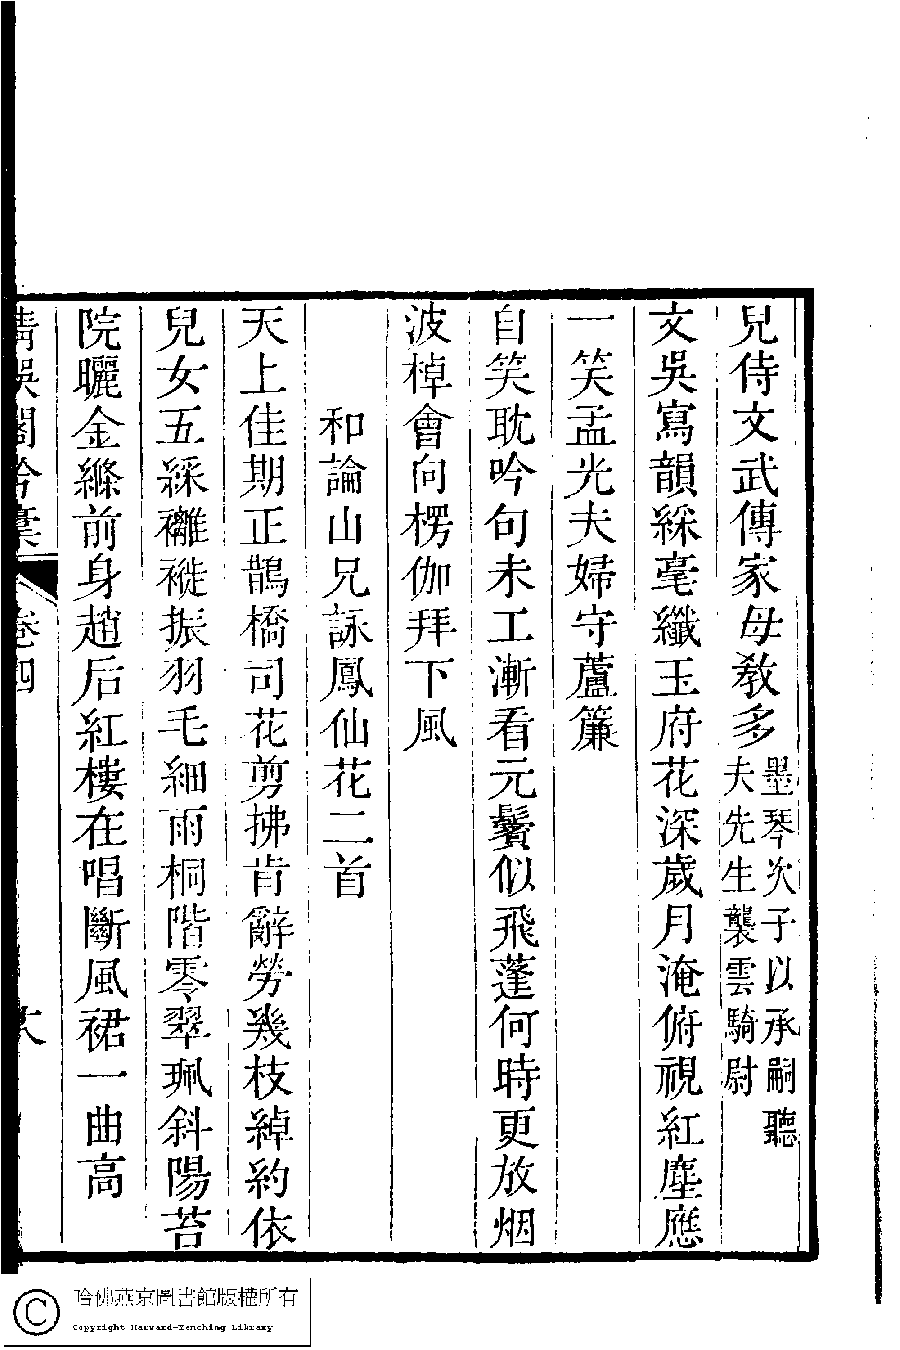 兒侍文武傳家母教多墨琴次子以承嗣聽
夫先生襲雲騎尉
文吳寫韻綵毫纖玉府花深歲月淹俯視紅塵應
一笑孟光夫婦守蘆簾
自笑耽吟句未工漸看元鬢似飛蓬何時更放烟
波棹會向楞伽拜下風
和論山兄詠鳳仙花二首
天上佳期正鵲橋司花剪拂肯辭勞幾枝綽約依
兒女五綵䙰褷振羽毛細雨桐階零翠珮斜陽苔
院曬金縧前身趙后紅樓在唱斷風裙一曲高
清娛閣吟藁 卷四
哈佛燕京圖書館版權所有
Copyright Harvard-Yenching Library